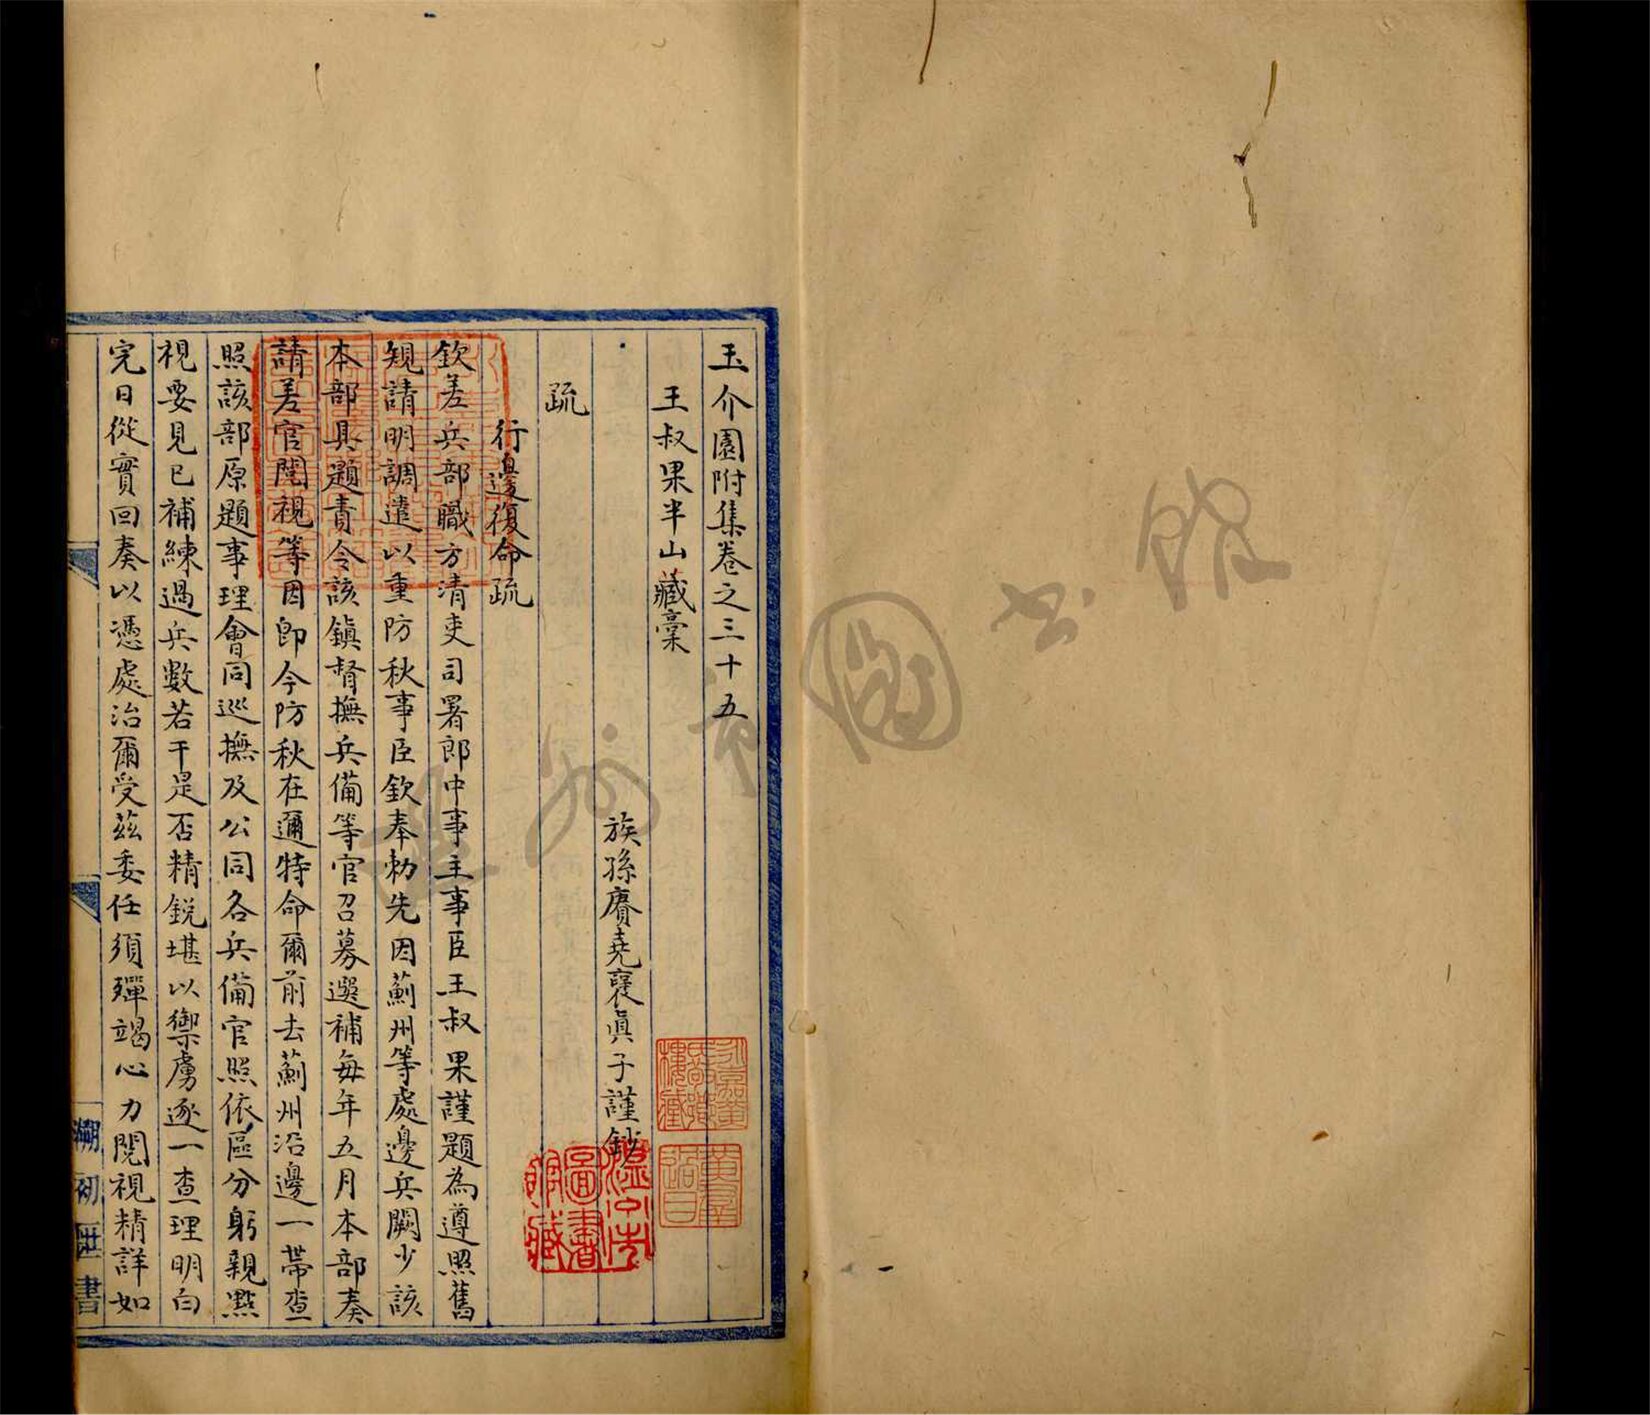 玉介園附集卷之三十五
王叔果半山藏稾
族孫賡堯裦眞子謹鈔
疏
行邊復命疏
欽差兵部職方清吏司署郎中事主事臣王叔果謹題為遵照舊
規請明調遣以重防秋事臣欽奉勑先因薊州等處邊兵闕少該
本部具題責令該鎮督撫兵備等官召募選補每年五月本部奏
請差官閱視等因即今防秋在邇特命爾前去薊州沿邊一帶查
照該部原題事理會同巡撫及公同各兵備官照依區分躬親點
視要見已補練過兵數若干是否精鋭堪以禦虜逐一查理明白
完日從實回奏以憑處治爾受茲委任須殫竭心力閱視精詳如
溫州市圖書館藏
溫州市圖書館